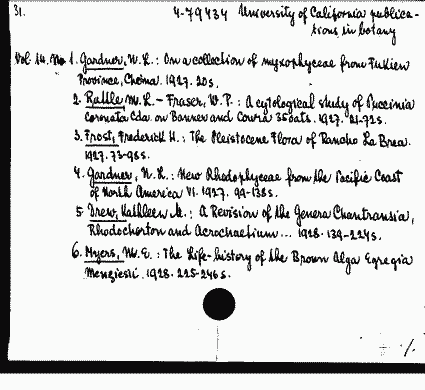 31. 4-79434 University of California publica-
tions in botany
Vol. 14. No 1. Gardner, N. L.: On a collection of myxophyceae from Fukien
Province, China. 1927. 20s.
2. Ruttle, M. L. - Fraser, W. P.: A cytological study of Puccinia
Coronata Cda. on Banner and Cowra 35 oats. 1927. 21-72s.
3. Frost, Frederick H.: The Pleistocene Flora of Rancho La Brea.
1927. 73-98s.
4. Gardner, N. L.: New Rhodophyceae from the Pacific Coast
of North America VI. 1927. 99-138s.
5. Drew, Kathleen M.: A Revision of the Genera Chantransia,
Rhodochorton and Acrochaetium... 1928. 139-224s.
6. Myers, M. E.: The Life-history of the Brown Alga Egregia
Menziesii. 1928. 225-246s.